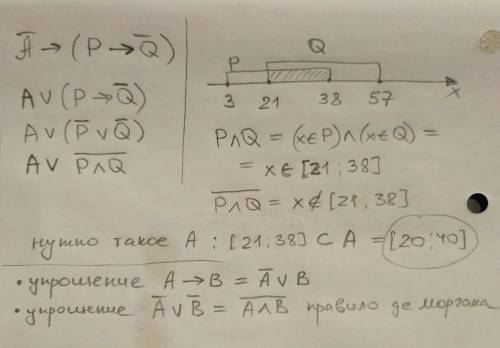 A̅ → (P → Q̅)
A ∨ (P → Q̅)
A ∨ (P̅ ∨ Q̅)
A ∨ P̅∧̅Q̅
P Q
3 21 38 57 x
P∧Q = (x∈P)∧(x∈Q) =
= x∈ [21; 38]
P̅∧̅Q̅ = x∉[21; 38]
нужно такое A : [21;38] ⊂ A = [20;40]
• упрощение A → B = A̅ ∨ B
• упрощение A̅ ∨ B̅ = A̅∧̅B̅ правило де моргана